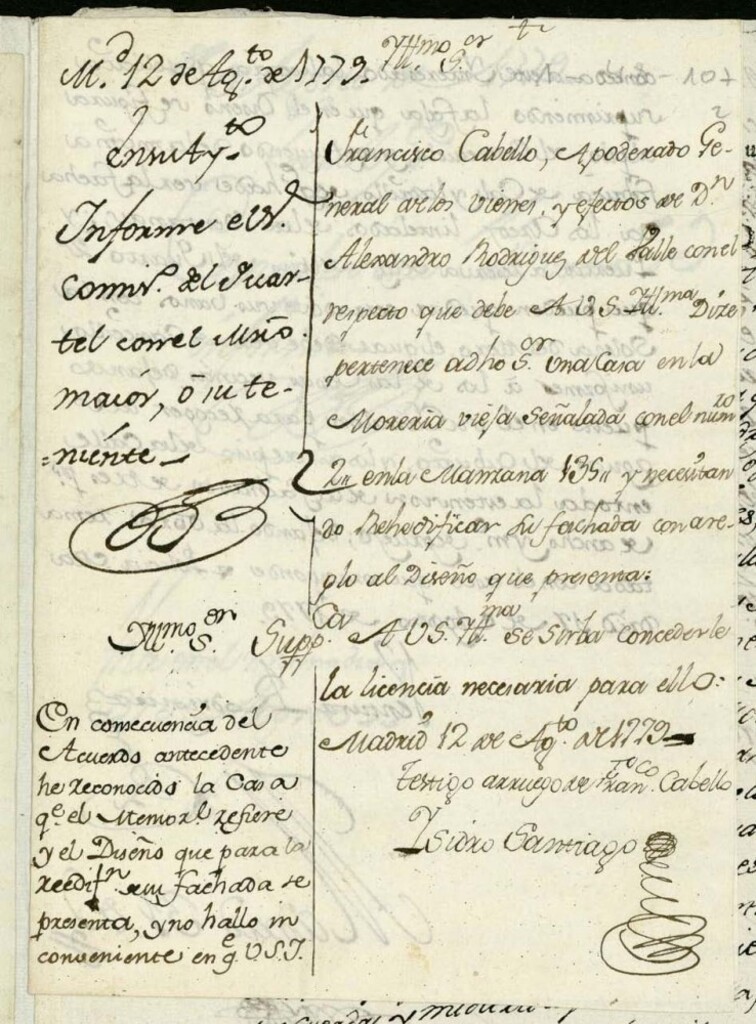 M.d 12 de Ag.to de 1779.
en su Ay.to
Informe el S.r
Comis.o del Quar-
tel con el Mrõ
maior, ô su te-
=niente_
Yll.mo S.or
Francisco Cabello, Apoderado Ge-
neral de los vienes, y efectos de D.n
Alexandro Rodriguez del Valle con el
respecto que debe A V S. Yll.ma Dize
pertenece a dho S.or una Casa en la
Moreria vieja señalada con el num.ro
2,, en la Manzana 135,, y necesitan
do Rehedificar su fachada con are-
glo al Diseño que presenta:
Supp.ca A V S. Yll.ma se sirba concederle
la licencia necesaria para ello:
Madrid 12 de Ag.to de 1779
Testigo a ruego de Fran.co Cabello
Ysidro Santiago
Yll.mo S.or
En consecuencia del
Acuerdo antecedente
he reconocido la Casa
q.e el Memor.l refiere
y el Diseño que para la
reedif.n de su fachada se
presenta, y no hallo in
conveniente en q.e V.S.I.